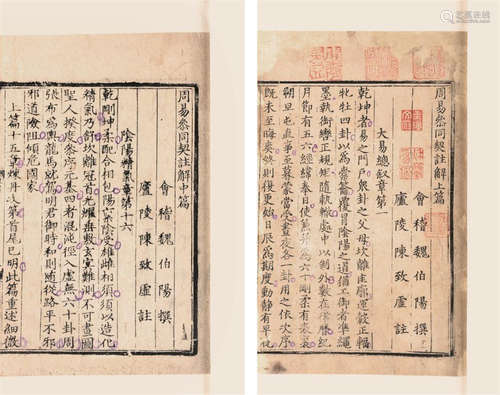 周易參同契註解上篇
會稽魏伯陽撰
廬陵陳致虛註
大易總敘章第一
乾坤者易之門戶衆卦之父母坎離匡廓運轂正輻
牝牡四卦以爲橐籥覆冒陰陽之道猶工御者準繩
墨執銜轡正規矩隨軌轍處中以制外數在律曆紀
月節有五六經緯奉日使兼并爲六十剛柔有表裏
朔旦屯直事至暮蒙當受晝夜各一卦用之依次序
既未至晦爽終則復更始日辰爲期度動靜有早晚
周易參同契註解中篇
會稽魏伯陽撰
廬陵陳致虛註
陰陽精氣章第十六
乾剛坤柔配合相包陽稟陰受雄雌相須須以造化
精氣乃舒坎離冠首光耀垂敷玄冥難測不可畫圖
聖人揆度參序元基四者混沌徑入虛無六十卦周
張布爲輿龍馬就駕明君御時和則隨從路平不邪
邪道險阻傾危國家
上篇十五章煉丹次第首尾已明此篇重述細微